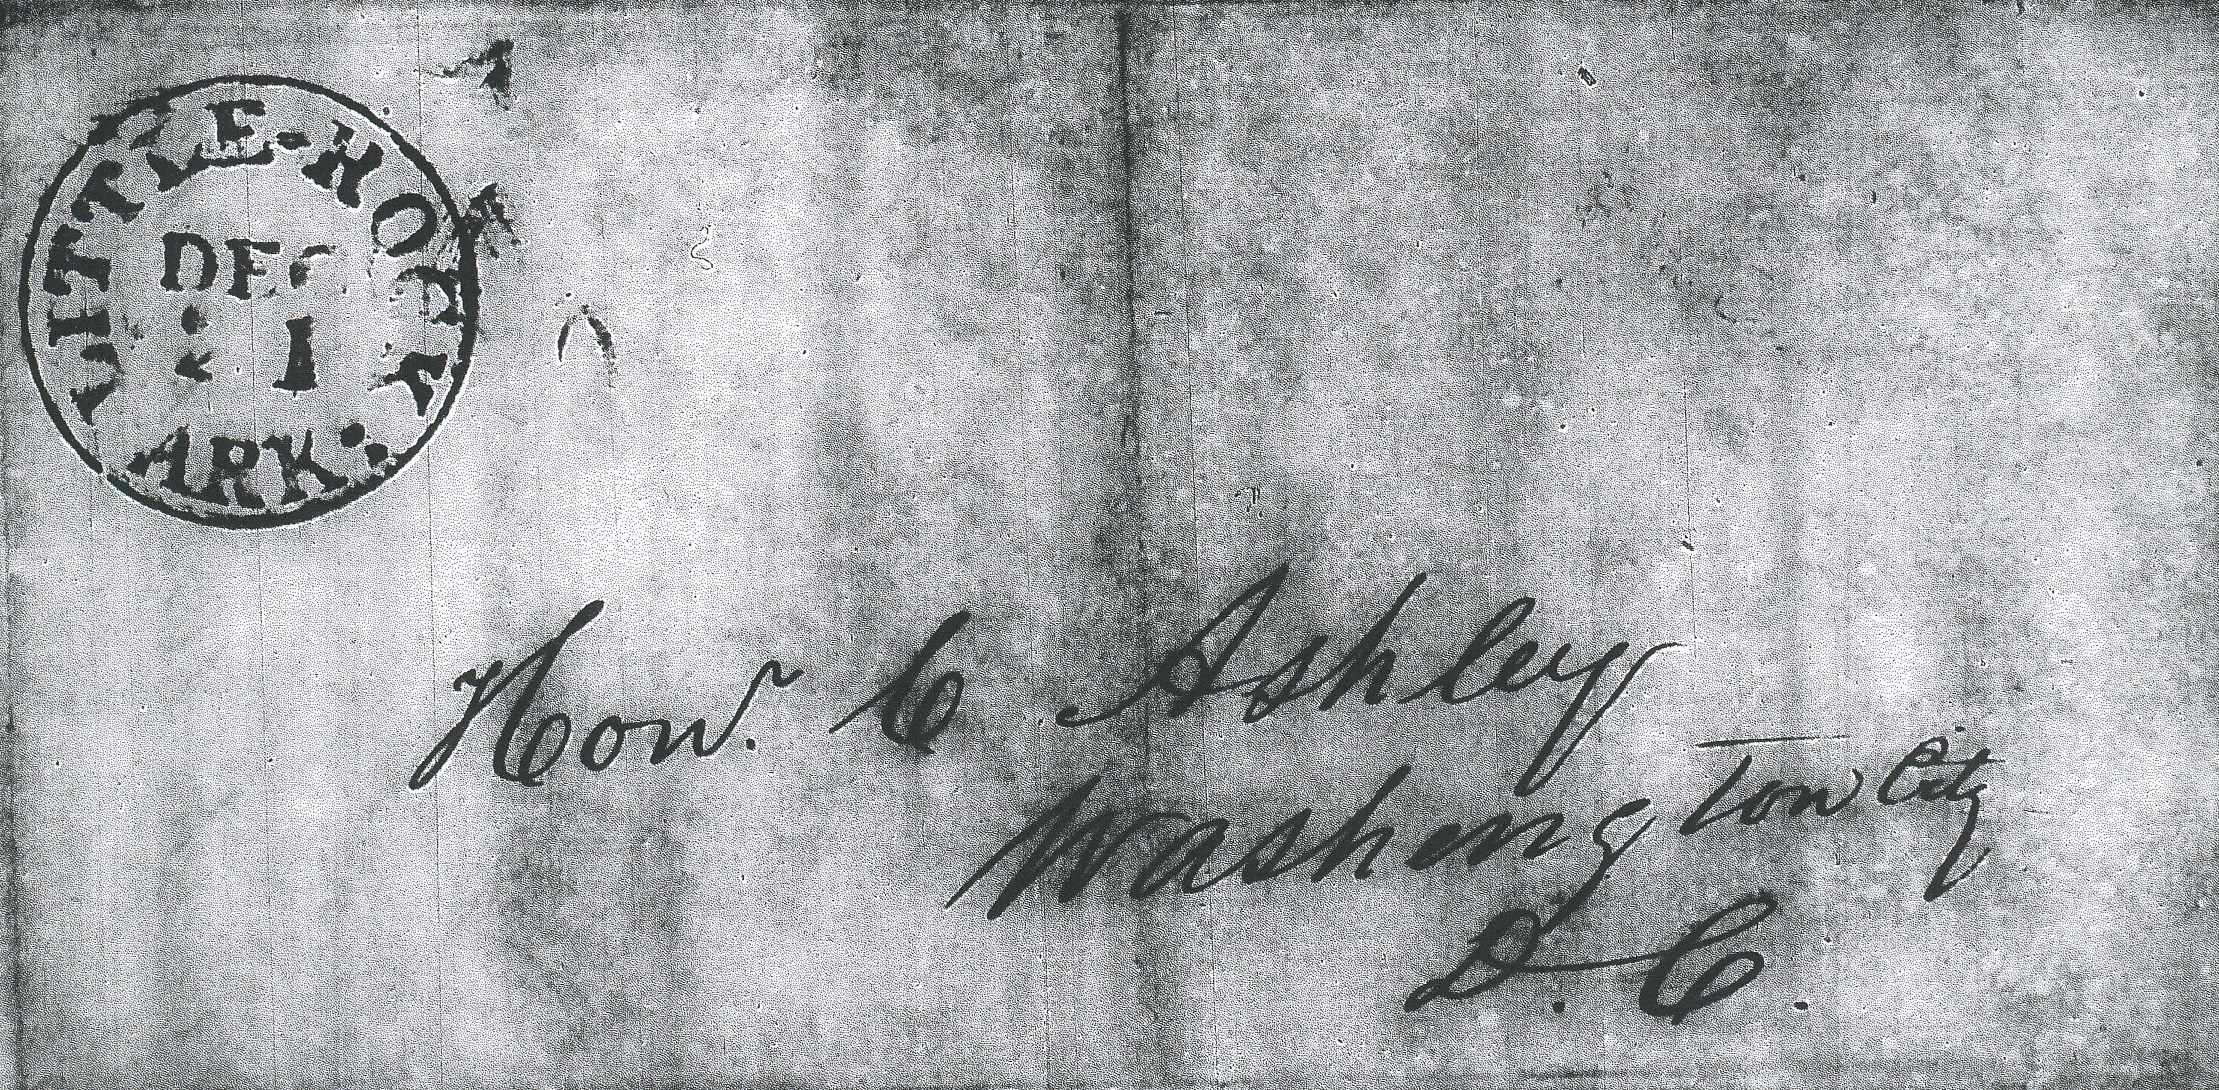 LITTLE-ROCK
DEC
1
ARK:
Honr. C Ashley
Washington City
D. C.